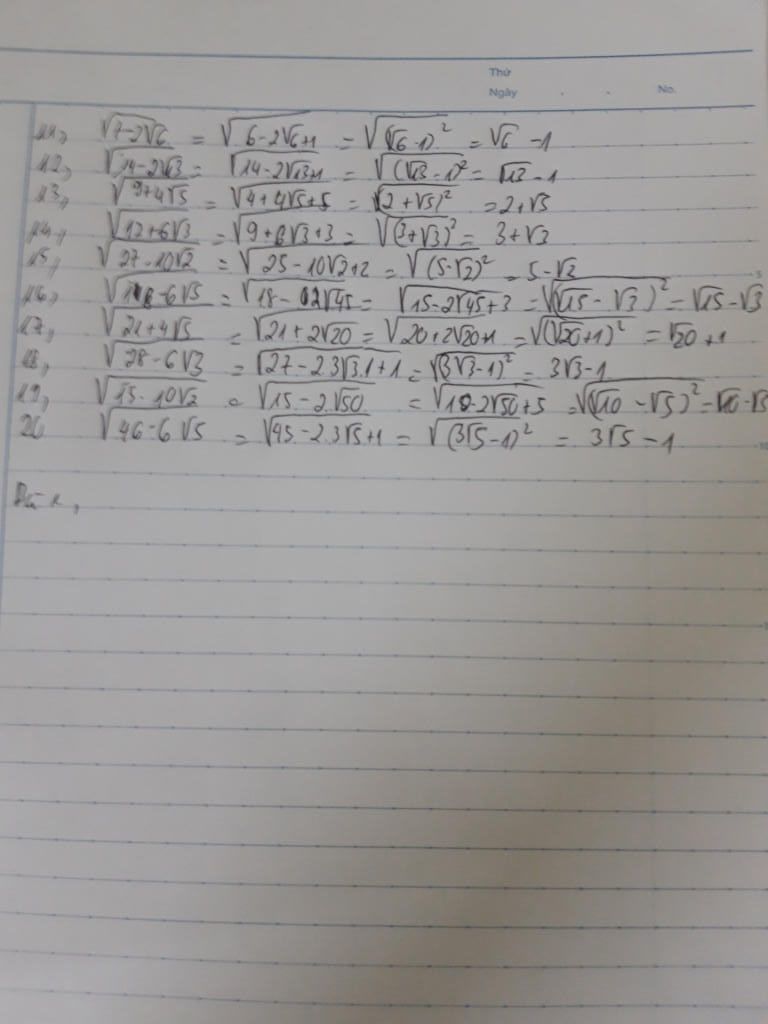 Thứ
Ngày . . No.
11, √(7-2√6) = √(6-2√6+1) = √((√6-1)²) = √6 -1
12, √(14-2√13) = √(14-2√13+1) = √((√13-1)²) = √13-1
13, √(9+4√5) = √(4+4√5+5) = √((2+√5)²) = 2+√5
14, √(12+6√3) = √(9+6√3+3) = √((3+√3)²) = 3+√3
15, √(27-10√2) = √(25-10√2+2) = √((5-√2)²) = 5-√2
16, √(18-6√5) = √(18-2√45) = √(15-2√45+3) = √((√15-√3)²) = √15-√3
17, √(21+4√5) = √(21+2√20) = √(20+2√20+1) = √((√20+1)²) = √20+1
18, √(28-6√3) = √(27-2.3√3.1+1) = √((3√3-1)²) = 3√3-1
19, √(15-10√2) = √(15-2√50) = √(10-2√50+5) = √((√10-√5)²) = √10-√5
20 √(46-6√5) = √(45-2.3√5+1) = √((3√5-1)²) = 3√5-1